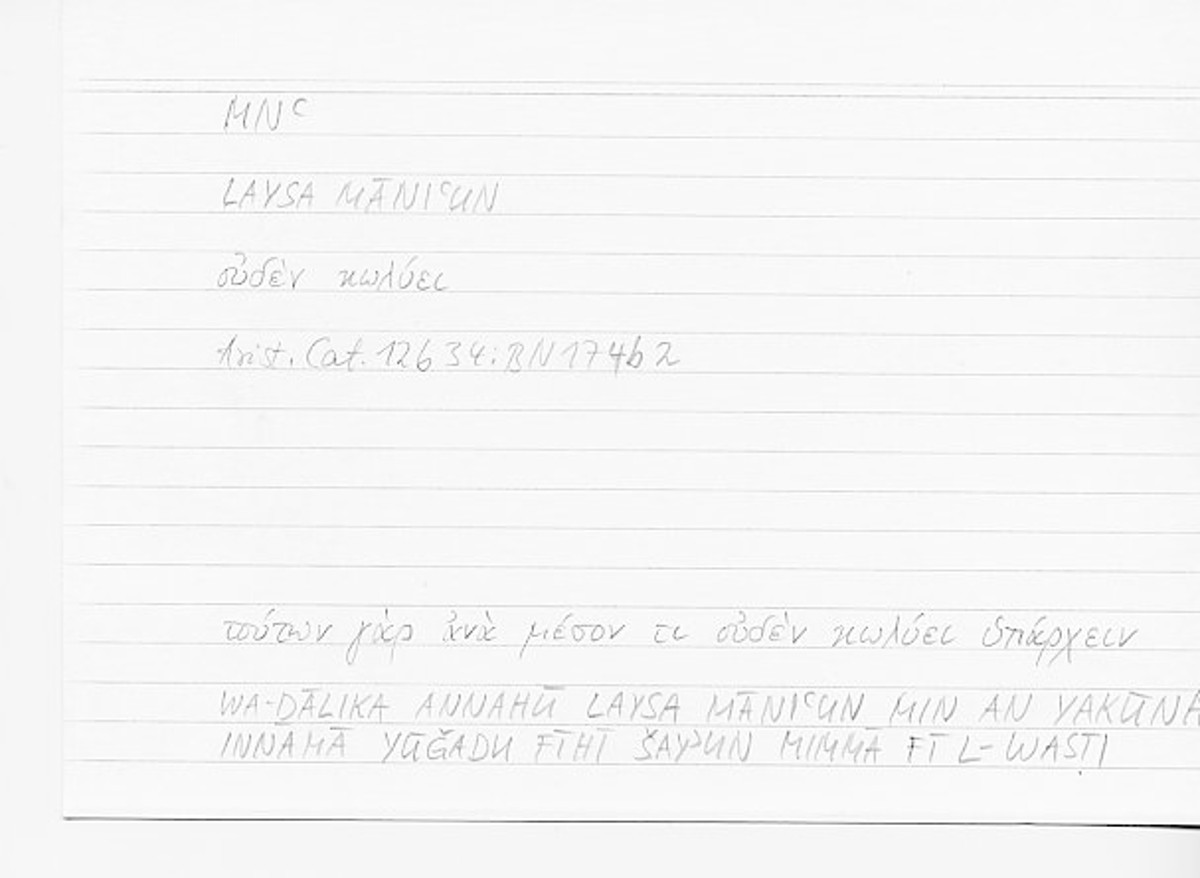 MNᶜ
LAYSA MĀNIᶜUN
οὐδὲν κωλύει
Arist. Cat. 12b34: BN 174b2
τούτων γὰρ ἀνὰ μέσον τι οὐδὲν κωλύει ὑπάρχειν
WA-ḎĀLIKA ANNAHŪ LAYSA MĀNIᶜUN MIN AN YAKŪNA
INNAMĀ YŪǦADU FĪHĪ ŠAYʾUN MIMMĀ FĪ L-WASṬI